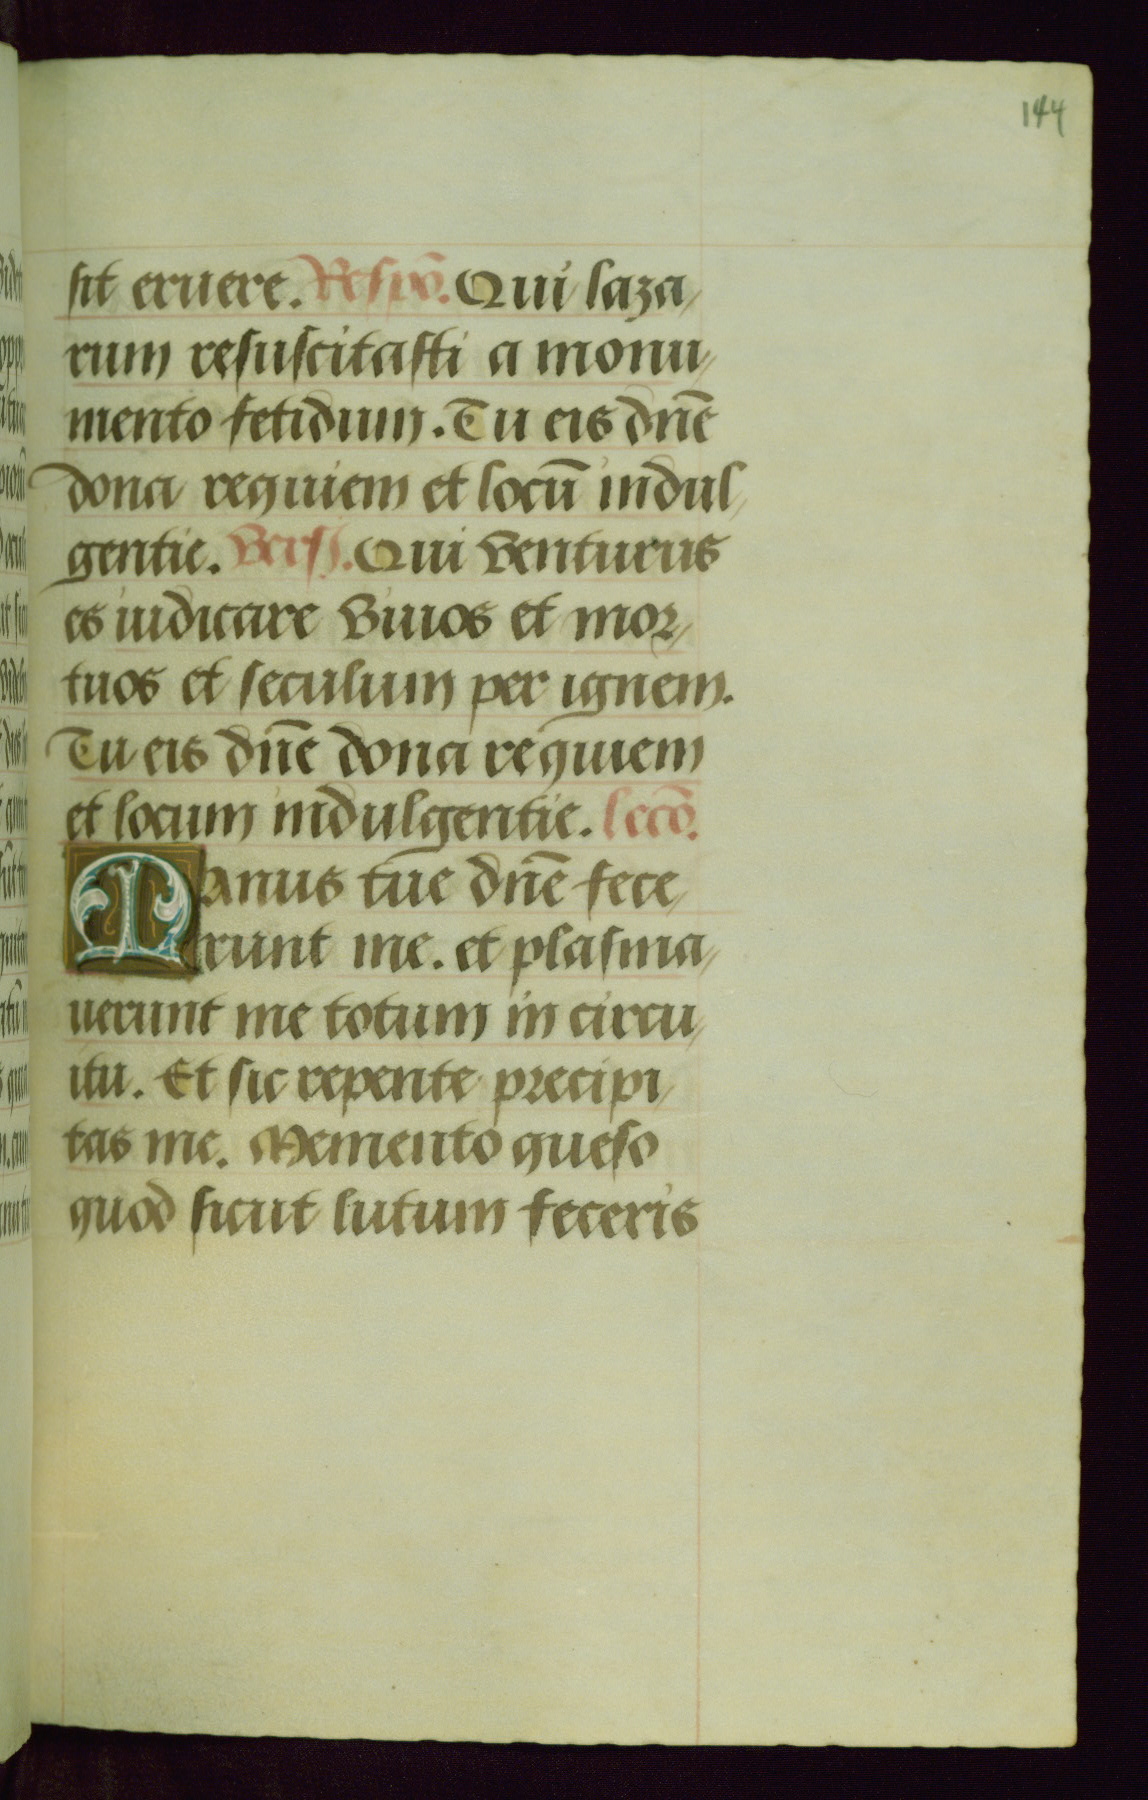 144
sit eruere. Respō. Qui laza,
rum resuscitasti a monu,
mento fetidum. Tu eis dn̄e
dona requiem et locū indul,
gentie. Vers. Qui venturus
es iudicare viuos et mor,
tuos et seculum per ignem.
Tu eis dn̄e dona requiem
et locum indulgentie. lecō.
Manus tūe dn̄e fece,
runt me. et plasma,
uerunt me totum in circu,
itu. Et sic repente precipi,
tas me. Memento queso
quod sicut lutum feceris